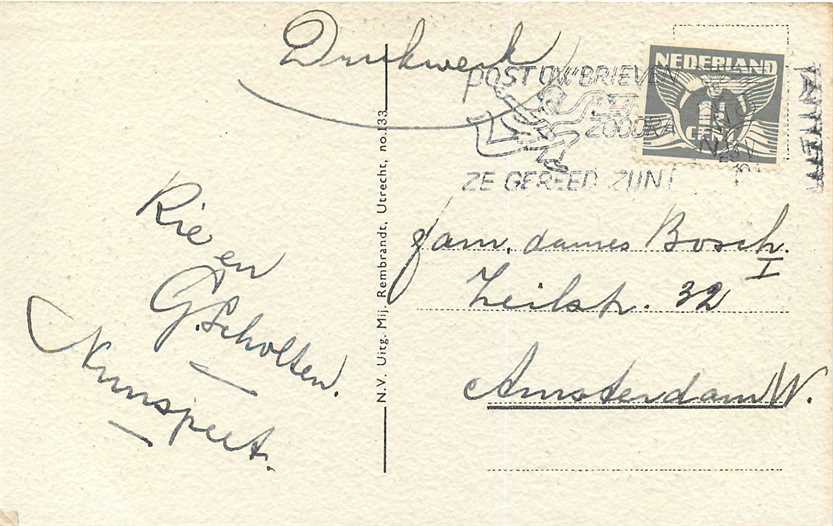 Drukwerk
POST UW BRIEVEN
ZOODRA
ZE GEREED ZIJN!
NEDERLAND
CENT
Rie en
G. Scholten.
Nunspeet.
N.V. Uitg. Mij. Rembrandt, Utrecht, no. 133
fam. dames Bosch.
Zeilstr. 32 I
Amsterdam W.